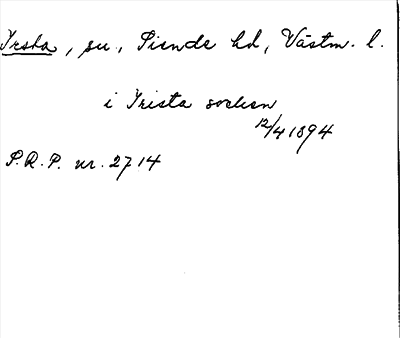 Irsta, sn., Siende hd, Västm. l.
i Irista socken
12/4 1894
S.R.P. nr. 2714